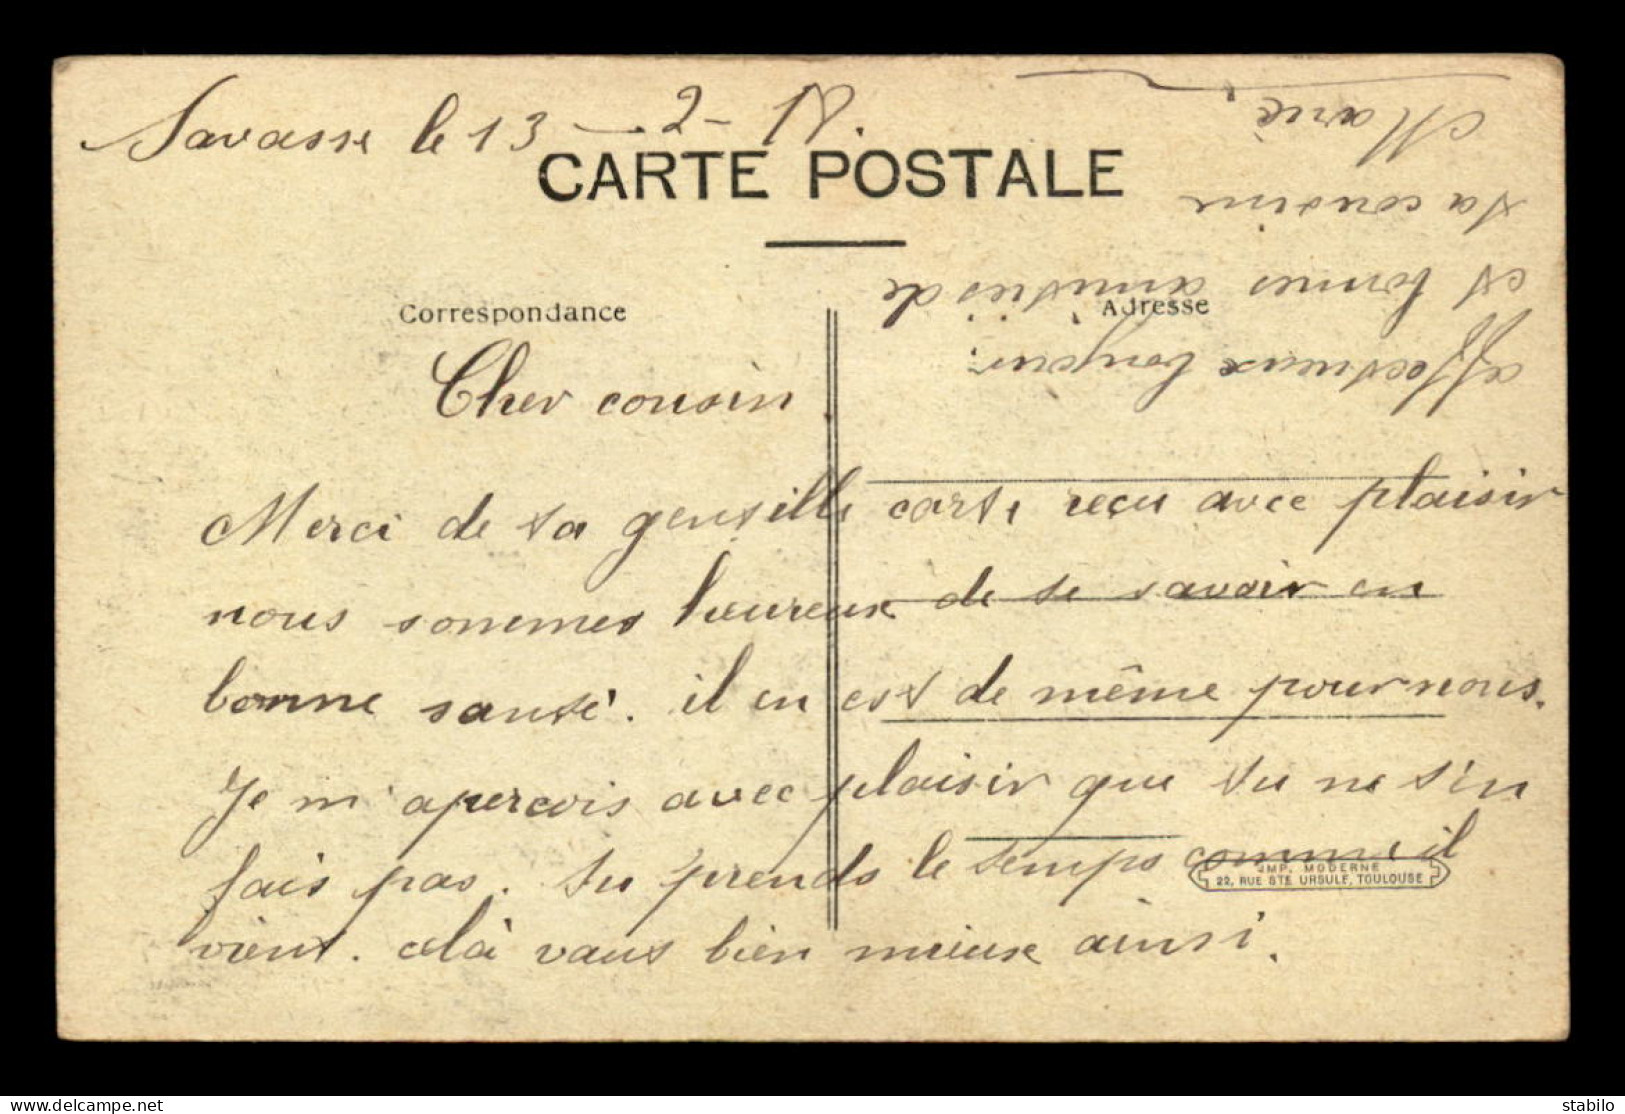 Savasse le 13 - 2 - 18.
CARTE POSTALE
Correspondance
Adresse
Cher cousin.
Merci de ta gentille carte reçu avec plaisir
nous sommes heureux de te savoir en
bonne santé. il en est de même pour nous.
Je m'apercois avec plaisir que tu ne t'en
fais pas. tu prends le temps comme il
vient. celà vaut bien mieux ainsi.
affectueux bonjour.
et bonnes amitiés de
ta cousine
Marie.
IMP. MODERNE
22, RUE STE URSULE, TOULOUSE
stabilo